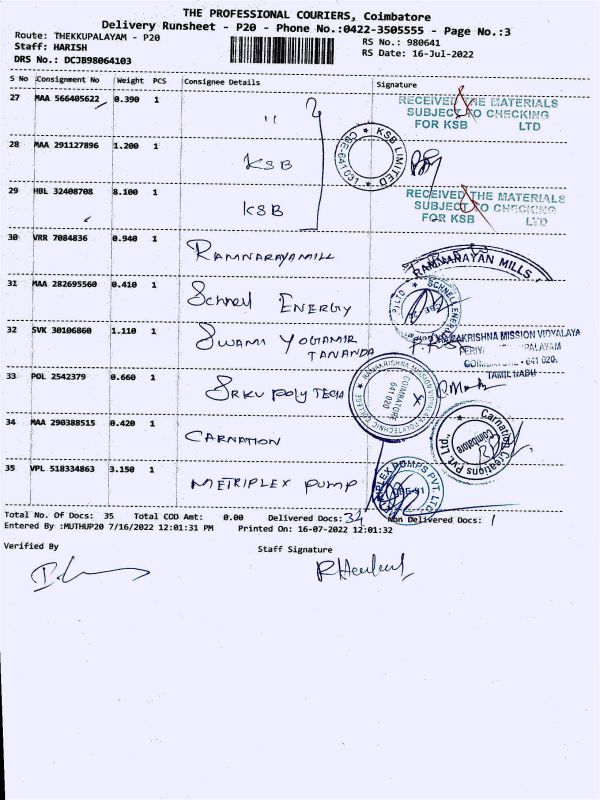 THE PROFESSIONAL COURIERS, Coimbatore
Delivery Runsheet - P20 - Phone No.:0422-3505555 - Page No.:3
Route: THEKKUPALAYAM - P20
RS No.: 980641
Staff: HARISH
RS Date: 16-Jul-2022
DRS No.: DCJB98064103
S No Consignment No Weight PCS Consignee Details Signature
27 MAA 566405622 0.390 1 "
RECEIVED THE MATERIALS
SUBJECT TO CHECKING
FOR KSB LTD
28 MAA 291127896 1.200 1 KSB
KSB LIMITED
CBE-641031
29 HBL 32408708 8.100 1 KSB
RECEIVED THE MATERIALS
SUBJECT TO CHECKING
FOR KSB LTD
30 VRR 7084836 0.940 1 RAMNARAYAMILL
RAMNARAYAN MILLS
31 MAA 282695560 0.410 1 Schnell ENERGY
SCHNELL ENERG
32 SVK 30106860 1.110 1 SWAMI YOGTAMIR
TANANDA
RAMAKRISHNA MISSION VIDYALAYA
COIMBATORE - 641 020.
TAMIL NADU
33 POL 2542379 0.660 1 SRKV POLY TECH
RAMAKRISHNA MISSION VIDYALAYA POLYTECHNIC COLLEGE
COIMBATORE
641 020
34 MAA 290388515 0.420 1 CARNATION
Carnation Creations Pvt. Ltd.,
Coimbatore
35 VPL 518334863 3.150 1 METRIPLEX PUMP
PLEX PUMPS PVT. LTD
Total No. Of Docs: 35 Total COD Amt: 0.00 Delivered Docs: 34 Non Delivered Docs: 1
Entered By :MUTHUP20 7/16/2022 12:01:31 PM Printed On: 16-07-2022 12:01:32
Verified By
Staff Signature